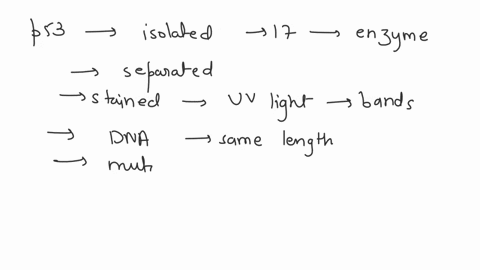 p53 → isolated → 17 → enzyme
→ separated
→ stained → UV light → bands
→ DNA → same length
→ mut